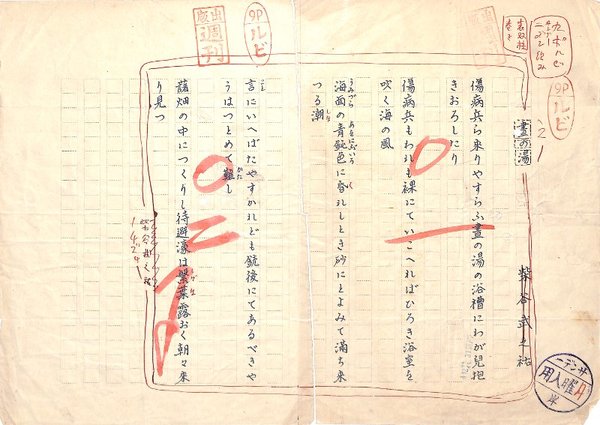 9P ルビ
晝の湯
柴谷武之祐
傷病兵ら乗りやすらふ晝の湯の浴槽にわが兒抱
きおろしたり
傷病兵もわれも裸にていこへればひろき浴室を
吹く海の風
海面の青鈍色に昏れしとき砂にとよみて満ち来
つる潮
言にいへばたやすかれども銃後にてあるべきや
うはつとめて難し
藷畑の中につくりし待避濠は繁葉露おく朝々来
り見つ
9P ルビ
出版
週刊
サンデー
月曜入用
岸